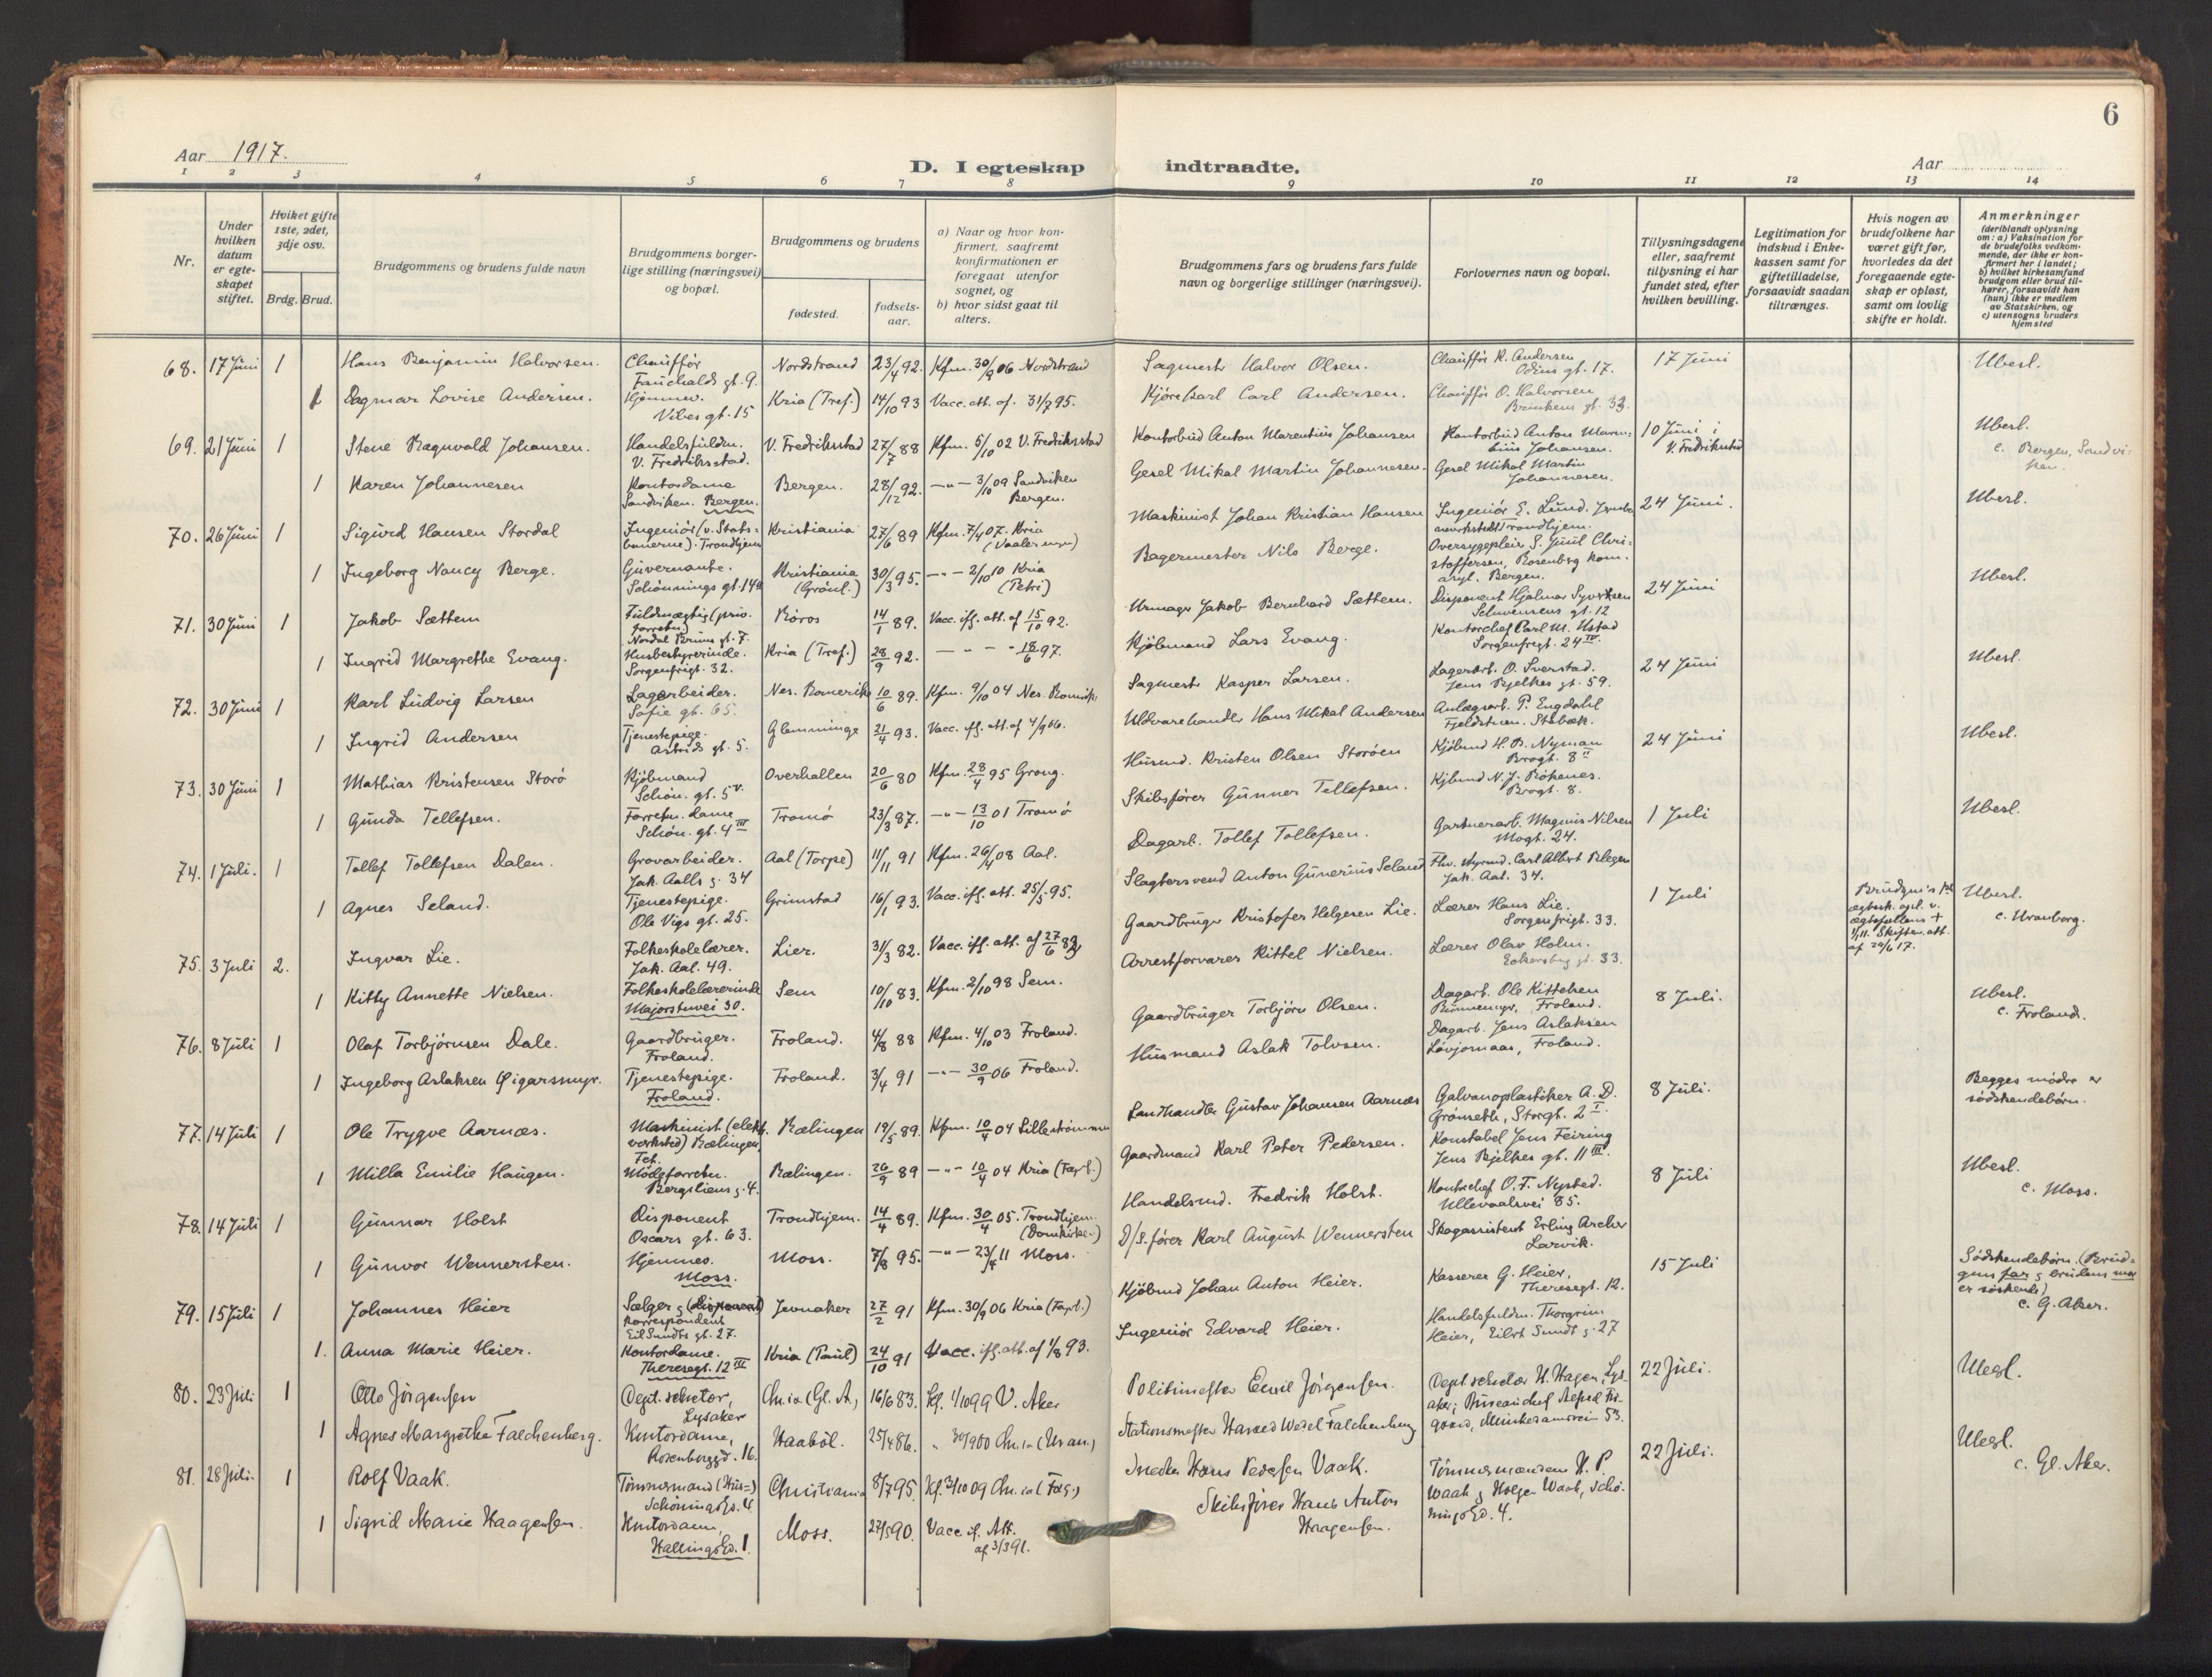 6
Aar 1917.
D. I egteskap indtraadte.
Aar
1 2 3 4 5 6 7 8 9 10 11 12 13 14
Nr.
Under hvilken datum er egteskapet stiftet.
Hvilket gifte 1ste, 2det, 3dje osv.
Brdg. Brud.
Brudgommens og brudens fulde navn
Brudgommens borgerlige stilling (næringsvei) og bopæl.
Brudgommens og brudens
fødested.
fødselsaar.
a) Naar og hvor konfirmert, saafremt konfirmationen er foregaat utenfor sognet, og
b) hvor sidst gaat til alters.
Brudgommens fars og brudens fars fulde navn og borgerlige stillinger (næringsvei).
Forlovernes navn og bopæl.
Tillysningsdagene eller, saafremt tillysning ei har fundet sted, efter hvilken bevilling.
Legitimation for indskud i Enkekassen samt for giftetilladelse, forsaavidt saadan tiltrænges.
Hvis nogen av brudefolkene har været gift før, hvorledes da det foregaaende egteskap er opløst, samt om lovlig skifte er holdt.
Anmerkninger (deriblandt oplysning om: a) Vaksination for de brudefolks vedkommende, der ikke er konfirmert her i landet; b) hvilket kirkesamfund brudgom eller brud tilhører, forsaavidt han (hun) ikke er medlem av Statskirken, og c) utensogns bruders hjemsted
68. 17 Juni 1 Hans Benjamin Halvorsen. Chauffør Fauchalds gt. 9. Nordstrand 23/4 92. Kfm. 30/9 06 Nordstrand Sagmest Halvor Olsen. Chauffør R. Andersen Odins gt. 17. 17 Juni Ubesl.
1 Dagmar Lovise Andersen. Hjemmev. Vibes gt. 15 Kria (Tref.) 14/10 93 Vacc. att. af. 31/7 95. Kjørekarl Carl Andersen. Chauffør O. Halvorsen Brinkens gt. 33.
69. 21 Juni 1 Stene Ragnvald Johansen. Handelsfuldm. V. Fredriksstad. V. Fredriksstad 27/7 88 Kfm. 5/10 02 V. Fredriksstad Kontorbud Anton Marentius Johansen Kontorbud Anton Marentius Johansen. 10 Juni i V. Fredrikstad Ubesl. c. Bergen, Sandviken.
1 Karen Johannesen Kontordame Sandviken. Bergen. Bergen. 28/12 92. -"- 3/10 09 Sandviken Bergen. Gesel Mikal Martin Johannesen. Gesel Mikal Martin Johannesen.
70. 26 Juni 1 Sigurd Hansen Stordal Ingeniør (v. Statsbanerne). Trondhjem Kristiania 27/6 89 Kfm. 7/4 07. Kria (Vaalerengen) Maskinist Johan Kristian Hansen Ingeniør E. Lund. Trondhjem. 24 Juni. Ubesl.
1 Ingeborg Nancy Berge. Guvernante. Schønnings gt. 14a Kristiania (Grønl.) 30/3 95. -"- 2/10 10 Kria (Petri) Bagermester Nils Berge. Oversygepleier S. Juul Christoffersen, Rosenberg kom. asyl. Bergen.
71. 30 Juni 1 Jakob Sættem Fuldmægtig (priv. forretn.) Nordal Bruns gt. 7. Røros 14/1 89. Vacc. iff. att. af 15/10 92. Urmager Jakob Bernhard Sættem. Disponent Hjalmar Syvertsen Schwensens gt. 12 24 Juni Ubesl.
1 Ingrid Margrethe Evang. Husbestyrerinde. Sorgenfrigt. 32. Kria (Tref.) 28/9 92. - " - " 18/6 97. Kjøbmand Lars Evang. Kontorchef Carl M. Ustad Sorgenfrigt. 24 IV
72. 30 Juni 1 Karl Ludvig Larsen Lagerarbeider. Sofie gt. 65. Nes. Romerike 10/6 89. Kfm. 9/10 04 Nes. Romerike Sagmester Kasper Larsen. Lagerarb. O. Sverstad. Jens Bjelkes gt. 59. 24 Juni Ubesl.
1 Ingrid Andersen Tjenestepige. Astrids gt. 5. Glemminge 21/4 93. Vacc. iff. att. af 4/9 06. Uldvarehandler Hans Mikal Andersen Anlægsarb. P. Engdahl Fjeldstuen. Stabæk.
73. 30 Juni 1 Mathias Kristensen Storø Kjøbmand Schøn. gt. 5 V. Overhallen 20/6 80 Kfm. 28/4 95 Grong. Husmd. Kristen Olsen Storøen Kjøbmd H. B. Nyman Brogt. 8 II 24 Juni Ubesl.
1 Gunda Tellefsen. Forretn. dame Schøn. gt. 4 III Tromø 23/3 87. -"- 13/10 01 Tromø Skibsfører Gunner Tellefsen. Kjbmd N. J. Røkenes. Brogt. 8.
74. 1 Juli. 1 Tollef Tollefsen Dalen. Grovarbeider. Jak. Aalls g. 34 Aal (Torpe) 11/11 91 Kfm. 26/4 08 Aal. Dagarb. Tollef Tollefsen. Gartnerarb. Magnus Nilsen Mogt. 24. 1 Juli Ubesl.
1 Agnes Seland. Tjenestepige. Ole Vigs gt. 25. Grimstad 16/1 93. Vacc. iff. att. 25/5 95. Slagtersvend Anton Gunerius Seland Fhv. styrmd. Carl Albert Jak. Aal. 34.
75. 3 Juli 2. Ingvar Lie. Folkeskolelærer. Jak. Aal. 49. Lier. 31/3 82. Vacc. iff. att. af 27/6 82 Gaardbruger Kristofer Helgesen Lie. Lærer Hans Lie. Sorgenfrigt. 33. 1 Juli Brudgm's 1st ægtesk. opl. v. ægtefællens + 1/1 11. Skifteratt. af 20/6 17. Ubesl. c. Uranborg.
1 Kitty Annette Nielsen. Folkeskolelærerinde Majorstuvei 30. Sem 10/10 83. Kfm. 2/10 98 Sem. Arrestforvarer Kittel Nielsen. Lærer Olav Holm. Eckersberg gt. 33.
76. 8 Juli 1 Olaf Torbjørnsen Dale. Gaardbruger. Froland. Froland. 4/8 88 Kfm. 4/10 03 Froland. Gaardbruger Torbjørn Olsen. Dagarb. Ole Kittelsen Froland. 8 Juli. Ubesl. c. Froland.
1 Ingeborg Aslaksen Øigarsmyr. Tjenestepige. Froland. Froland. 3/4 91 -"- 30/9 06 Froland. Husmand Aslak Tolvsen. Dagarb. Jens Aslaksen Løvjomaas, Froland.
77. 14 Juli 1 Ole Trygve Aarnæs. Maskinist (elekt. verksted) Rælingen, Fet. Rælingen 19/5 89. Kfm. 10/4 04 Lillestrømmen Landhandler Gustav Johansen Aarnæs Galvanoplastiker A. D. Grønseth, Storgt. 2 I. 8 Juli. Begges mødre er sødskendebørn.
1 Milla Emilie Haugen. Modeforretn. Bergsliens g. 4. Rælingen. 26/9 89 -"- 10/4 04 Kria (Fagb.) Gaardmand Karl Peter Pedersen. Konstabel Jens Feiring Jens Bjelkes gt. 11 III.
78. 14 Juli 1 Gunnar Holst Disponent Oscars gt. 63. Trondhjem. 14/4 89. Kfm. 30/4 05. Trondhjem (Domkirken) Handelsmd. Fredrik Holst. Kontorchef O. F. Nysted. Ullevaalsvei 85. 8 Juli Ubesl. c. Moss.
1 Gunvor Wennersten. Hjemmev. Moss. Moss. 7/8 95. -"- 23/4 11 Moss. D/S. fører Karl August Wennersten Skogassistent Erling Archer Larvik.
79. 15 Juli 1 Johannes Heier Sælger g (disponent) korrespondent Eil. Sundts gt. 27. Jevnaker 27/2 91 Kfm. 30/9 06 Kria (Fagb.) Kjøbmd Johan Anton Heier. Kasserer G. Heier, Theresegt. 12. 15 Juli Sødskendebørn. (Brudgms far g brudens mor er søskende) c. G. Aker.
1. Anna Marie Heier. Kontordame. Theresegt. 12 III Kria (Paul) 24/10 91 Vacc. iff. att. af 1/8 93. Ingeniør Edvard Heier. Handelsfuldm. Thorgrim Heier, Eilert Sundt g. 27
80. 23 Juli 1 Otto Jørgensen Dept. sekretær, Lysaker Chr.ia (Gl. A.) 16/6 83. Kf. 1/10 99 V. Aker Politimester Emil Jørgensen. Dept. sekretær H. Hagen, Lysaker; Bureauchef Munkedamsvein 53. 22 Juli. Ubesl.
1 Agnes Margrethe Falchenberg. Kontordame, Rosenborggd. 16. Haabøl. 25/4 86. " 30/9 00 Chr.ia (Uran.) Stationsmester Harald Wedel Falchenberg
81. 28 Juli. 1 Rolf Vaak. Tømmermand (Hus=) Schønings Gd. 4 Christiania 8/7 95. Kf. 3/10 09 Chr.ia (Fag.) Snedker Hans Pedersen Vaak. Tømmermændene H. P. Waak g Holger Waak, Schønings Gd. 4. 22 Juli. Ubesl. c. Gl. Aker.
1 Sigrid Marie Haagensen. Kontordame, Hallings Gd. 1. Moss. 27/5 90. Vacc. if. Att. af 3/3 91. Skibsfører Hans Anton Haagensen.